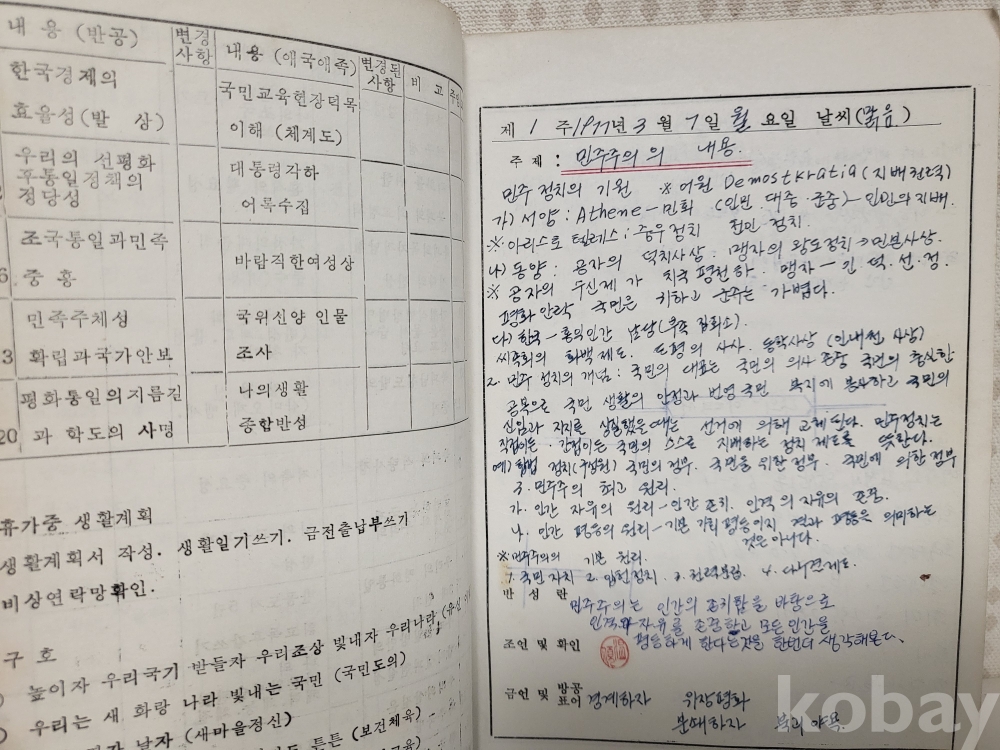 내 용 (반공) 변경사항 내용 (애국애족) 변경된사항 비 고
한국경제의 국민교육헌장덕목
효율성(발 상) 이해 (체계도)
우리의 선평화 대통령각하
후통일정책의 어록수집
정당성
조국통일과민족 바람직한여성상
6 중 흥
민족주체성 국위선양 인물
3 확립과국가안보 조사
평화통일의지름길 나의생활
20 과 학도의 사명 종합반성
휴가중 생활계획
생활계획서 작성. 생활일기쓰기. 금전출납부쓰기
비상연락망확인.
구 호
높이자 우리국기 받들자 우리조상 빛내자 우리나라
우리는 새 화랑 나라 빛내는 국민 (국민도의)
날자 (새마을정신)
튼튼 (보건체육)
제 1 주 1977년 3 월 7 일 월 요일 날씨 (맑음)
주 제 : 민주주의 의 내용.
민주 정치의 기원 ※ 어원 Demostkratia (지배 권력)
가) 서양 : Athene - 민회 (인민. 대중. 군중) - 인민의 지배.
※ 아리스토 텔레스 ; 중우정치 천민 정치.
나) 동양 : 공자의 덕치사상. 맹자의 왕도정치 → 민본사상.
※ 공자의 수신제가 치국 평천하. 맹자 - 인. 덕. 선. 정.
평화안락 국민은 귀하고 군주는 가볍다.
다) 한국 - 홍익인간 남당 (부족 집회소).
씨족회의 화백 제도. 동학사상 (인내천 사상)
2. 민주 정치의 개념 : 국민의 대표는 국민의 의사 존중 국민의 충실한
공복으로 국민 생활의 안정과 번영 국민 복지에 봉사하고 국민의
신임과 지지를 상실했을때는 선거에 의해 교체된다. 민주정치는
직접이든. 간접이든 국민의 스스로 지배하는 정치 제도를 뜻한다.
예) 링컨 국민의 정부. 국민을 위한 정부. 국민에 의한 정부
3. 민주주의 최고 원리.
가. 인간 자유의 원리 - 인간 존치. 인격의 자유의 존중.
나. 인간 평등의 원리 - 기본 가치 평등이지 결과 평등을 의미하는
것은 아니다.
※ 민주주의의 기본 원리.
1. 국민 자치 2. 입헌정치. 3. 권력분립. 4. 다수결제도.
반 성 란
민주주의는 인간의 존치함을 바탕으로
인격과 자유를 존중하고 모든 인간을
조언 및 확인 평등하게 한다는것을 한번더 생각해본다.
금언 및 방공표어 경계하자 위장평화
분쇄하자 북괴 야욕.
kobay